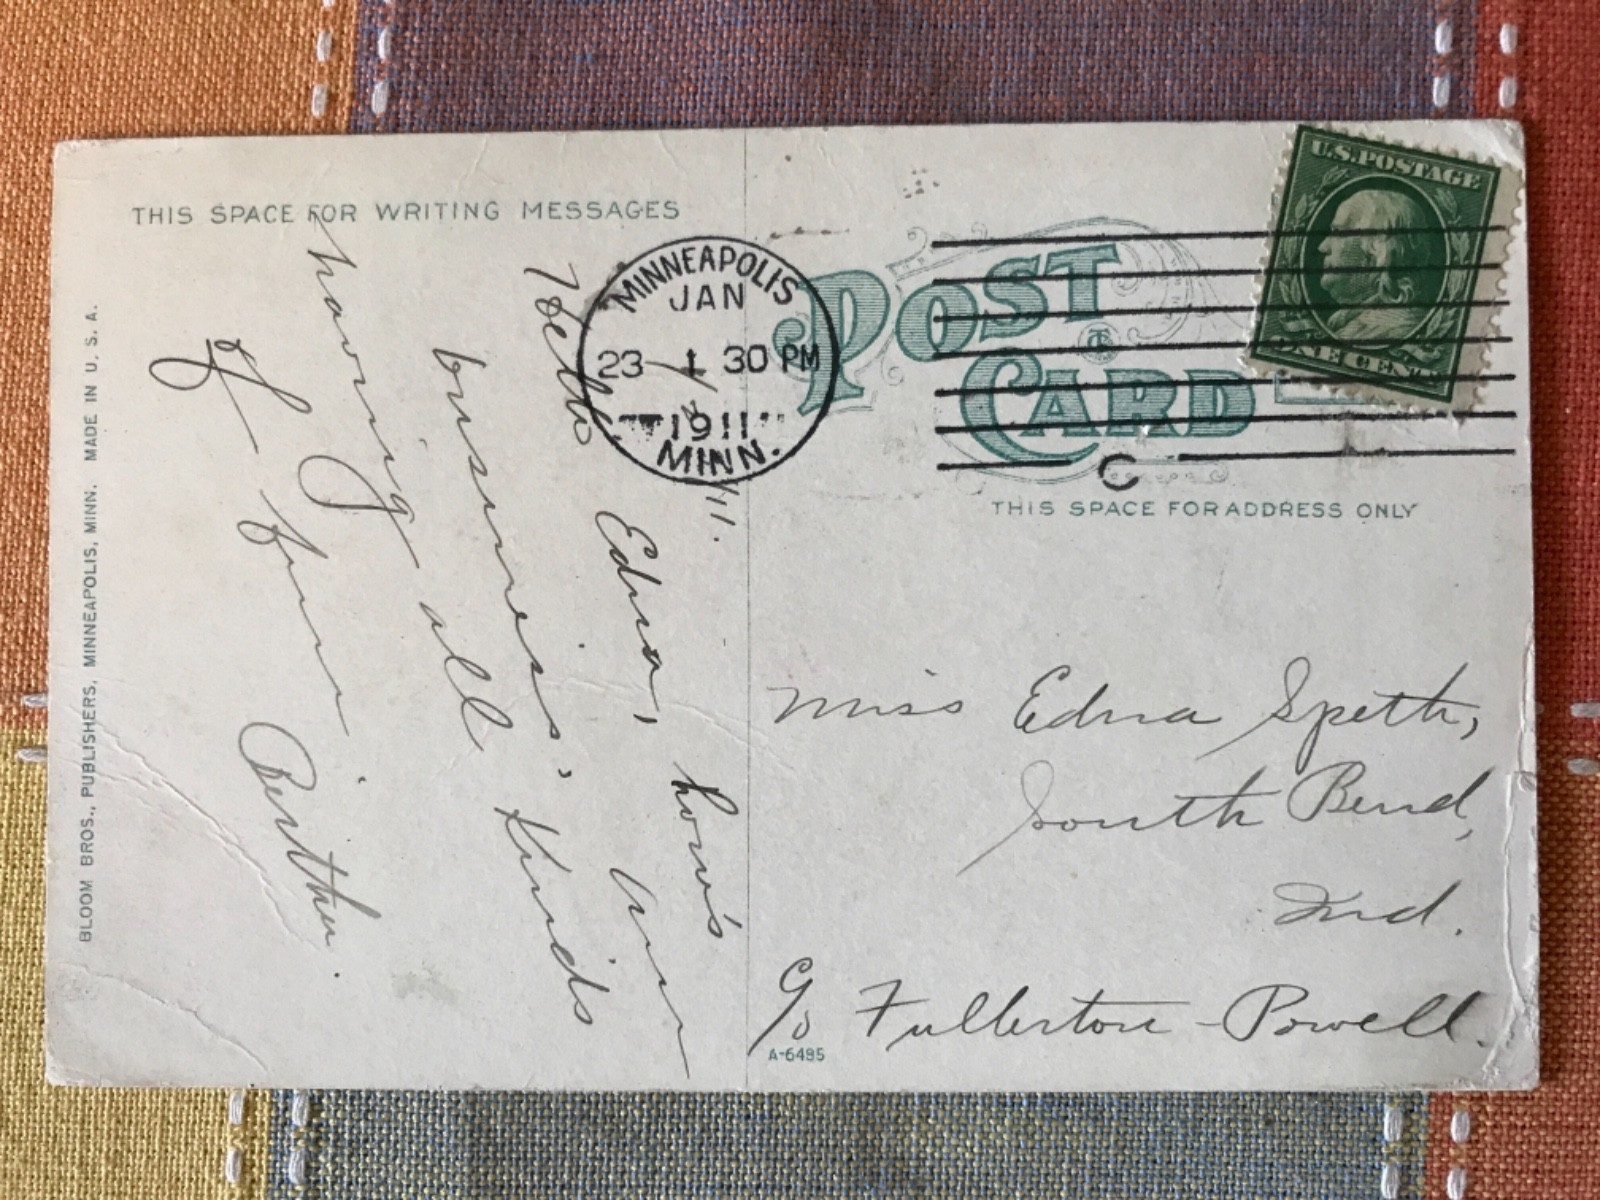 THIS SPACE FOR WRITING MESSAGES
MINNEAPOLIS
JAN
23 1 30 PM
1911
MINN.
POST
CARD
U.S. POSTAGE
ONE CENT
THIS SPACE FOR ADDRESS ONLY
/11.
Hello Edna, how's
business', Am
having all Kinds
of fun.
Miss Edna Speth,
South Bend,
Ind.
c/o Fullerton - Powell.
A-6495
BLOOM BROS., PUBLISHERS, MINNEAPOLIS, MINN. MADE IN U. S. A.